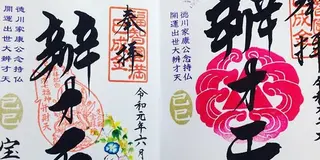 奉拝
令和元年六月
辨才天
徳川家康公持仏
開運出世大辨才天
己巳
宝
奉拝
辨才天
徳川家康公持仏
開運出世大辨才天
己巳